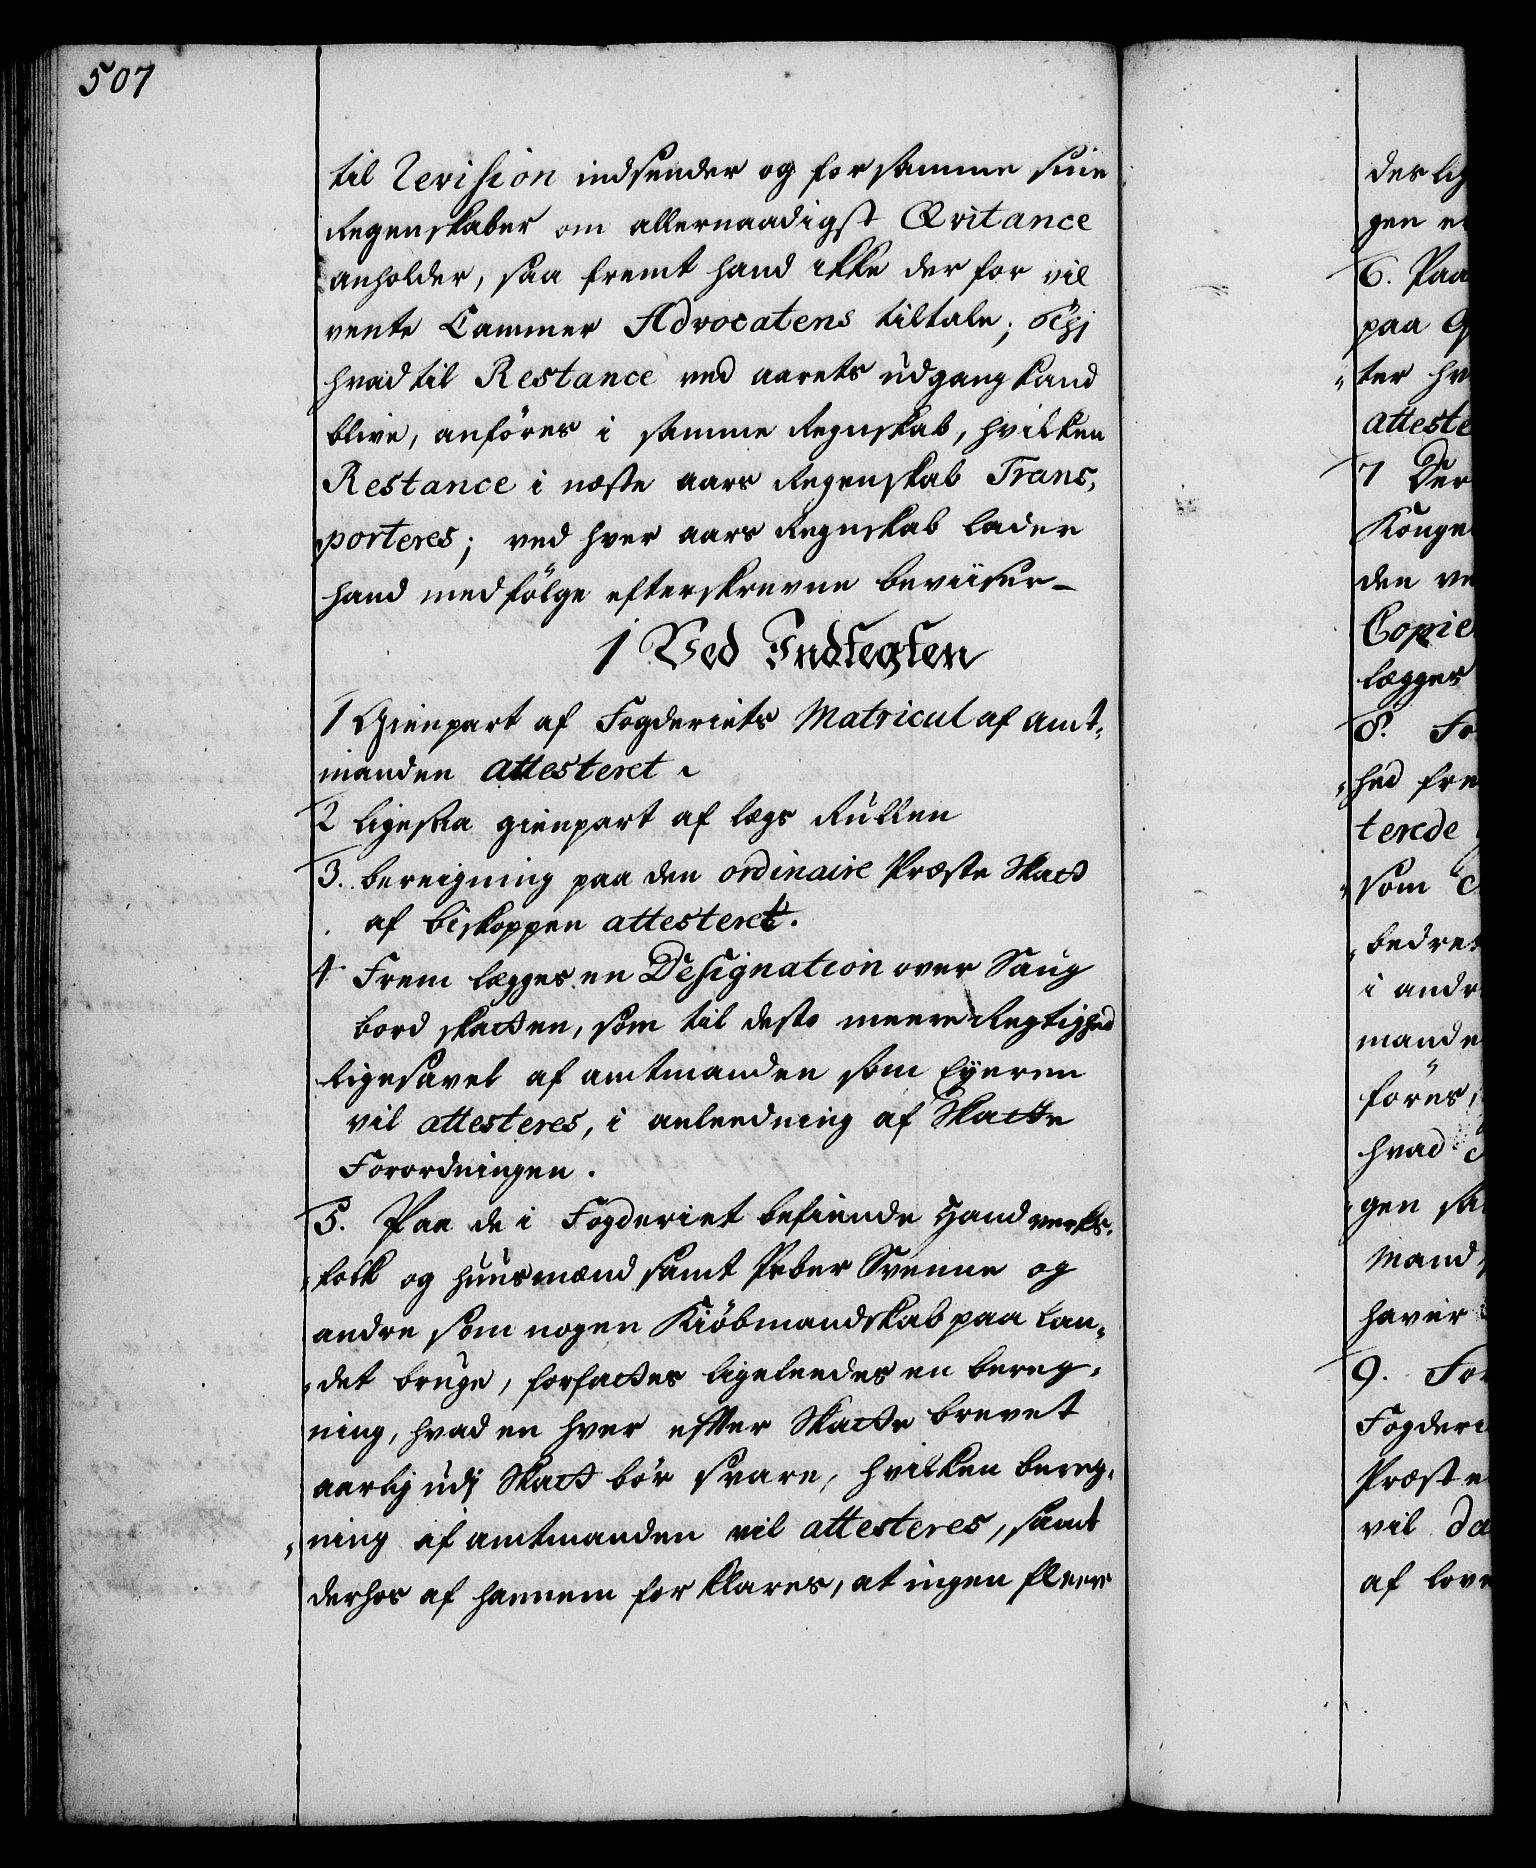 507
til Revision indsender og for samme sine
Regenskaber om allernaadigst Qvitance
anholder, saa fremt hand ikke der for vil
vente Cammer Advocatens tiltale;
hvad til Restance ved aarets udgang kand
blive, anföres i samme Regnskab, hvilken
Restance i næste aars Regenskab Trans,
porteres; ved hver aars Regnskab lader
hand medfölge efterskrevne beviiser_
1 Ved Indtegten
1 Gienpart af Fogderiets Matricul af amt,
manden attesteret
2 ligesaa gienpart af lægs Rullen
3. bereigning paa den ordinaire Præste Skatt
af biskoppen attesteret.
4 Frem lægges en Designation over Saug
bord skatten, som til desto meere Regtighed
ligesavel af amtmanden som Eyeren
vil attesteres, i anleedning af Skatte
Forordningen.
5. Paa de i Fogderiet befinde Handverks,
folk og huusmænd samt Peber Svenne og
andre som nogen Kiöbmandskab paa lan,
det bruge, forfattes ligeleedes en bereg,
ning, hvad en hver efter Skatte brevet
aarlig udj Skatt bör svare, hvilken bereg,
ning af amtmanden vil attesteres, samt
derhos af hannem for klares, at ingen fleere
des lig
gen
6. Paa
paa
ter hv
atteste
7 Der
Konge
den ve
Copie
lægges
8. Fo
hed fre
terede
som
bedre
i andr
mande
föres,
hvad
gen sa
Mand
haver
9. For
Fogderi
Præste
vil da
af lov